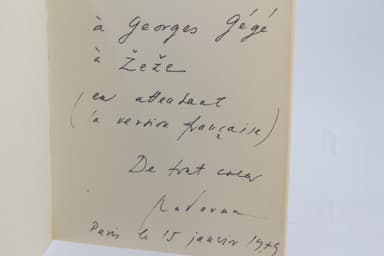 à Georges Gégé
à Žeže
(en attendant
la version française)
De tout cœur
Radovan
Paris le 15 janvier 1979